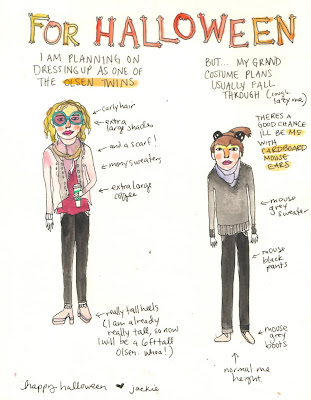 FOR HALLOWEEN
I AM PLANNING ON
DRESSING UP AS ONE OF
THE OLSEN TWINS
curly hair
extra
large shades
and a scarf!
many sweaters
extra large
coffee
really tall heels
(I am already
really tall, so now
I will be a 6ft tall
Olsen. whoa!)
BUT... MY GRAND
COSTUME PLANS
USUALLY FALL
THROUGH (cough,
lazy me)
THERES A
GOOD CHANCE
ILL BE ME
WITH
CARDBOARD
MOUSE
EARS
mouse
grey
sweater
mouse
black
pants
mouse
grey
boots
normal me
height
happy halloween ♥ jackie